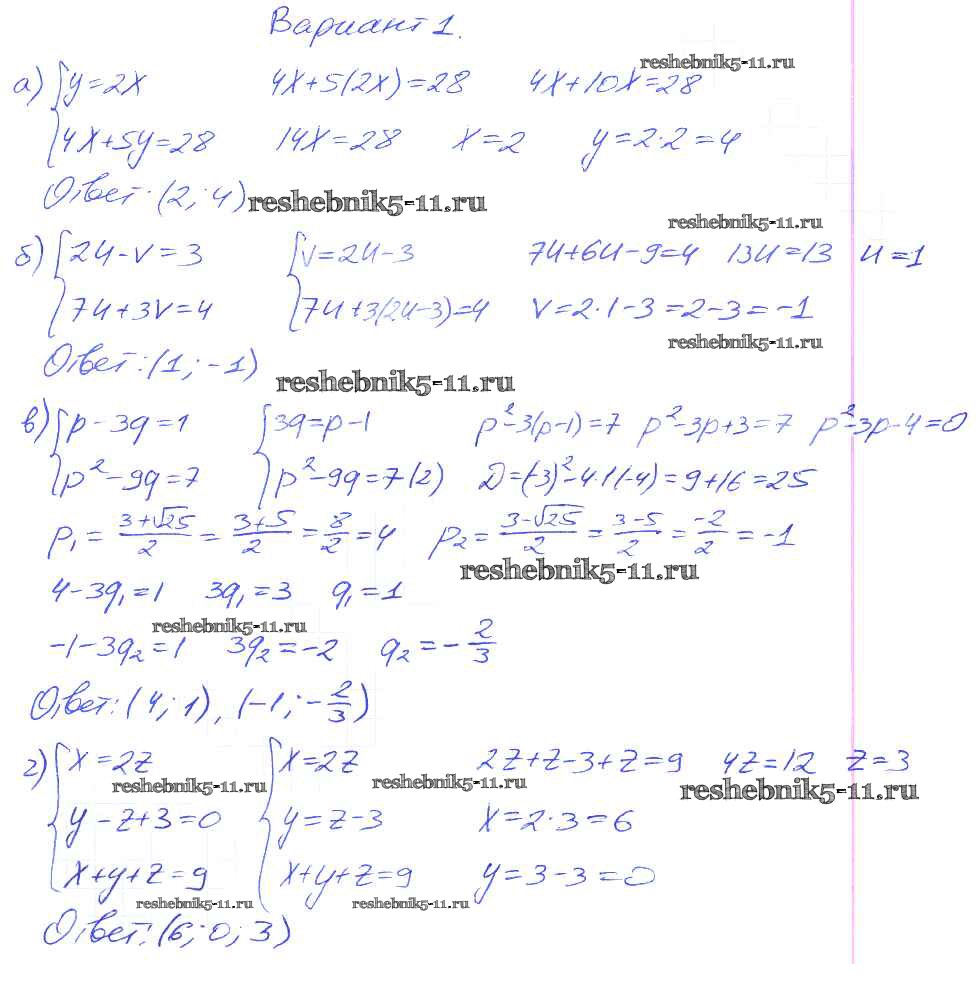 Вариант 1.
reshebnik5-11.ru
а) { y=2x   4x+5(2x)=28   4x+10x=28
4x+5y=28   14x=28   x=2   y=2·2=4
Ответ: (2; 4) reshebnik5-11.ru
reshebnik5-11.ru
б) { 2u-v=3   { v=2u-3   7u+6u-9=4   13u=13   u=1
7u+3v=4   7u+3(2u-3)=4   v=2·1-3=2-3=-1
reshebnik5-11.ru
Ответ: (1; -1)
reshebnik5-11.ru
в) { p-3q=1   { 3q=p-1   p²-3(p-1)=7   p²-3p+3=7   p²-3p-4=0
p²-9q=7   p²-9q=7 (2)   D=(-3)²-4·1(-4)=9+16=25
p₁=(3+√25)/2=(3+5)/2=8/2=4   p₂=(3-√25)/2=(3-5)/2=-2/2=-1
reshebnik5-11.ru
4-3q₁=1   3q₁=3   q₁=1
reshebnik5-11.ru
-1-3q₂=1   3q₂=-2   q₂=-2/3
Ответ: (4; 1), (-1; -2/3)
г) { x=2z   { x=2z   2z+z-3+z=9   4z=12   z=3
reshebnik5-11.ru   reshebnik5-11.ru   reshebnik5-11.ru
y-z+3=0   y=z-3   x=2·3=6
x+y+z=9   x+y+z=9   y=3-3=0
reshebnik5-11.ru   reshebnik5-11.ru
Ответ: (6; 0; 3)